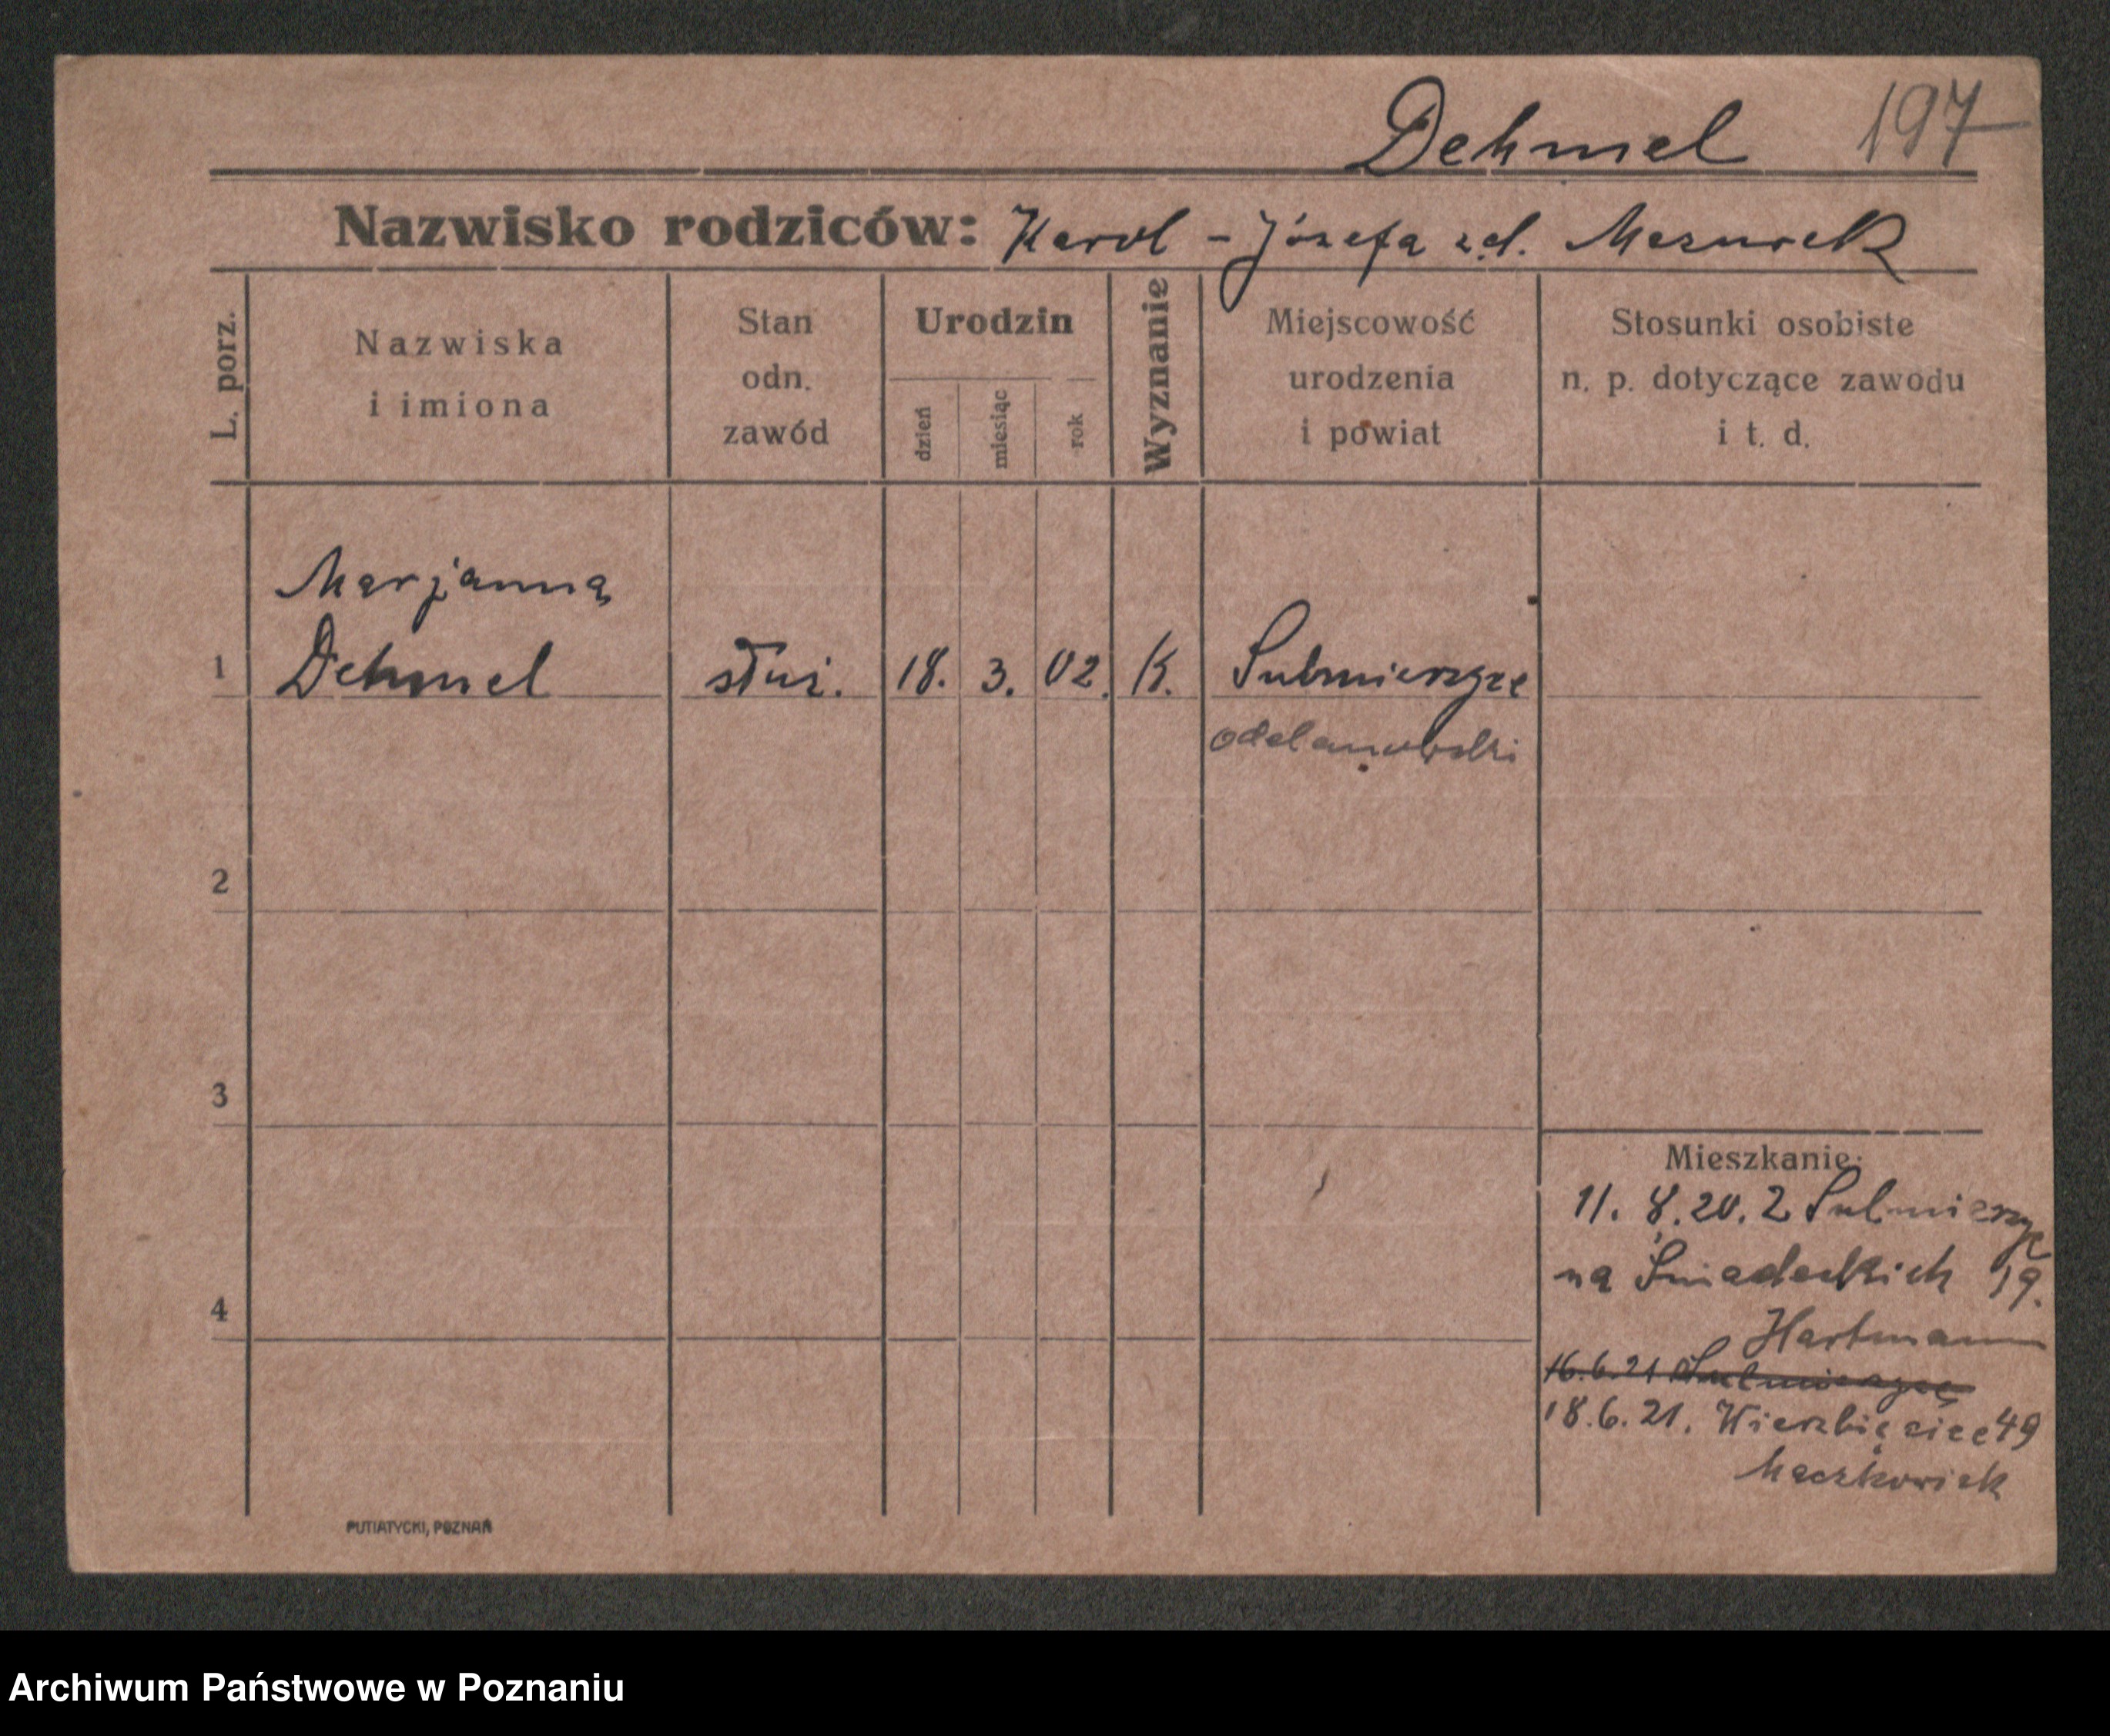 Dehmel 197
Nazwisko rodziców: Karol - Józefa zd. Mazurek
L. porz.
Nazwiska
i imiona
Stan
odn.
zawód
Urodzin
dzień
miesiąc
rok
Wyznanie
Miejscowość
urodzenia
i powiat
Stosunki osobiste
n. p. dotyczące zawodu
i t. d.
Marjanna
1 Dehmel służ. 18. 3. 02. K. Sulmierzyce
odolanowski
2
3
4
Mieszkanie:
11. 8. 20. z Sulmierzyc
na Śniadeckich 19.
Hartmann
16.6.21 Sulmierzyce
18.6.21. Wierzbięcice 49
Maćkowiak
PUTIATYCKI, POZNAŃ
Archiwum Państwowe w Poznaniu